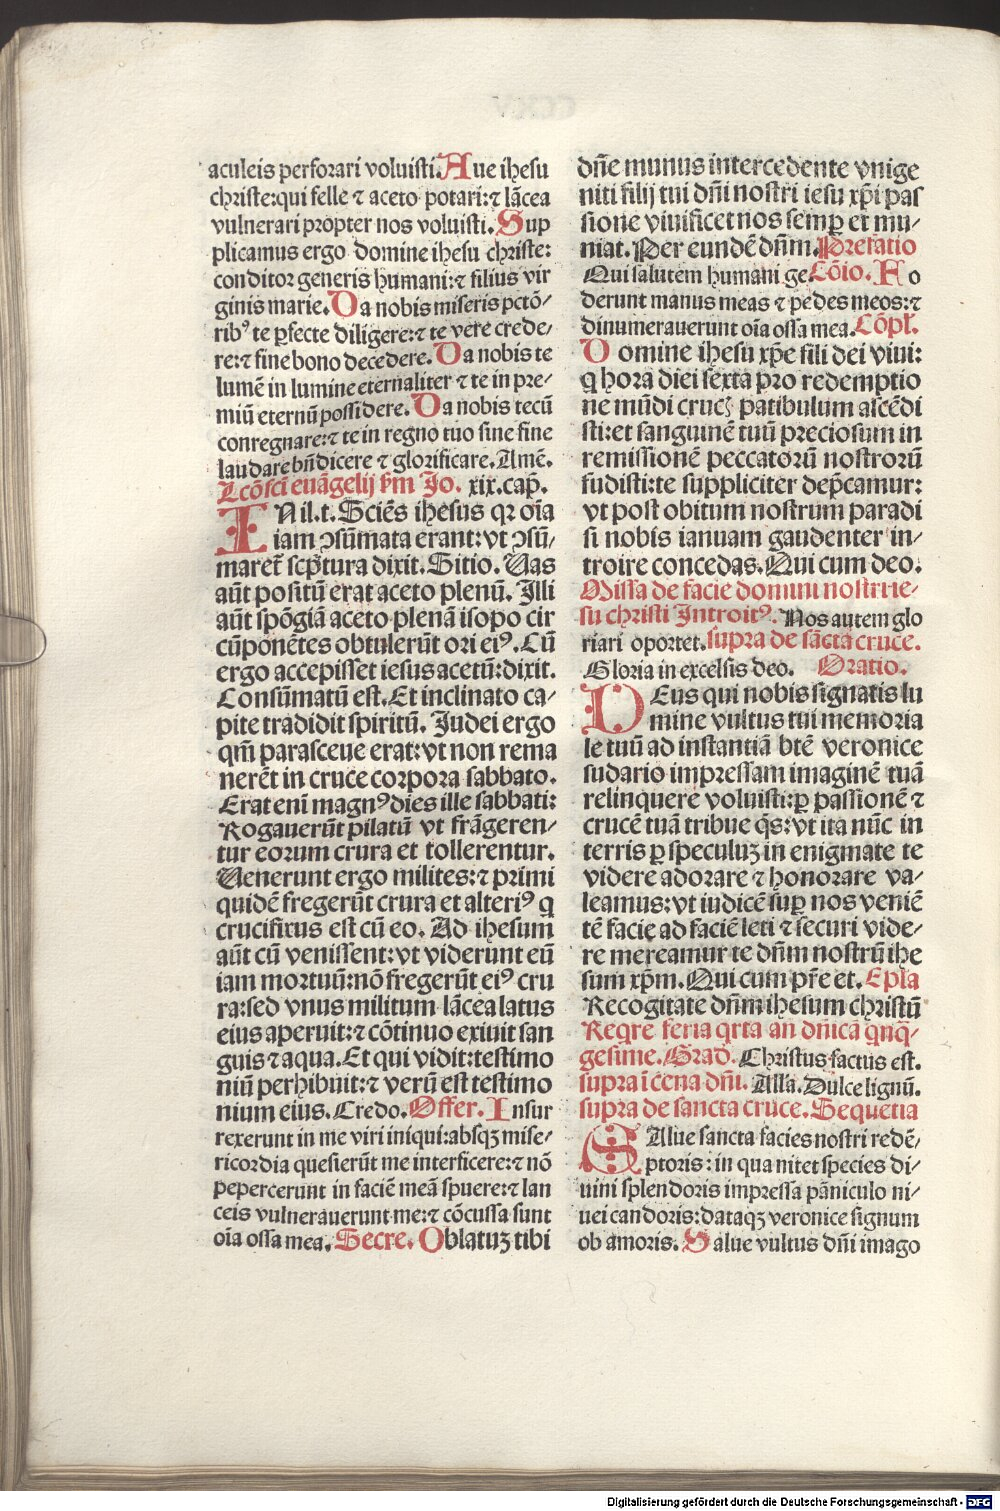 aculeis perforari voluisti. Aue ihesu
christe: qui felle ⁊ aceto potari: ⁊ lācea
vulnerari propter nos voluisti. Sup
plicamus ergo domine ihesu christe:
conditor generis humani: ⁊ filius vir
ginis marie. Da nobis miseris pctō/
ribꝰ te ꝑfecte diligere: ⁊ te vere crede/
re: ⁊ fine bono decedere. Da nobis te
lumē in lumine eternaliter ⁊ te in pre/
miū eternū possidere. Da nobis tecū
conregnare: ⁊ te in regno tuo sine fine
laudare bn̄dicere ⁊ glorificare. Amē.
Lcō sci euāgelij ẜm Jo. xix. cap̄.
IN il. t. Sciēs ihesus qꝛ oīa
iam ɔsūmata erant: vt ɔsū/
maret̄ scp̄tura dixit. Sitio. Uas
aūt positū erat aceto plenū. Illi
aūt spōgiā aceto plenā isopo cir
cūponētes obtulerūt ori eiꝰ. Cū
ergo accepisset iesus acetū: dixit.
Consūmatū est. Et inclinato ca/
pite tradidit spiritū. Judei ergo
qm̄ parasceue erat: vt non rema
nerēt in cruce corpora sabbato.
Erat enī magnꝰ dies ille sabbati:
Rogauerūt pilatū vt frāgeren/
tur eorum crura et tollerentur.
Uenerunt ergo milites: ⁊ primi
quidē fregerūt crura et alteriꝰ q
crucifixus est cū eo. Ad ihesum
aūt cū venissent: vt viderunt eū
iam mortuū: nō fregerūt eiꝰ cru
ra: sed vnus militum lācea latus
eius aperuit: ⁊ cōtinuo exiuit san
guis ⁊ aqua. Et qui vidit: testimo
niū perhibuit: ⁊ verū est testimo
nium eius. Credo. Offer. Insur
rexerunt in me viri iniqui: absqꝫ mise/
ricordia quesierūt me interficere: ⁊ nō
pepercerunt in faciē meā spuere: ⁊ lan
ceis vulnerauerunt me: ⁊ cōcussa sunt
oīa ossa mea. Secre. Oblatuꝫ tibi
dn̄e munus intercedente vnige
niti filij tui dn̄i nostri iesu xp̄i pas
sione viuificet nos semꝑ et mu/
niat. Per eundē dn̄m. Prefatio
Qui salutem humani ge Cōio. Fo
derunt manus meas ⁊ pedes meos: ⁊
dinumerauerunt oīa ossa mea. Cōpl̄.
Domine ihesu xp̄e fili dei viui:
q hora diei sexta pro redemptio
ne mūdi crucꝭ patibulum ascēdi
sti: et sanguinē tuū preciosum in
remissionē peccatorū nostrorū
fudisti: te suppliciter dep̄camur:
vt post obitum nostrum paradi
si nobis ianuam gaudenter in/
troire concedas. Qui cum deo.
Missa de facie domini nostri ie/
su christi Introitꝰ. Nos autem glo
riari oportet. supra de sācta cruce.
Gloria in excelsis deo. Oratio.
DEus qui nobis signatis lu
mine vultus tui memoria
le tuū ad instantiā btē veronice
sudario impressam imaginē tuā
relinquere voluisti: ꝑ passionē ⁊
crucē tuā tribue q̄s: vt ita nūc in
terris ꝑ speculuꝫ in enigmate te
videre adorare ⁊ honorare va/
leamus: vt iudicē suꝑ nos veniē
tē facie ad faciē leti ⁊ securi vide/
re mereamur te dn̄m nostrū ihe
sum xp̄m. Qui cum pr̄e et. Ep̄la
Recogitate dn̄m ihesum christū
Reqre feria qrta an̄ dn̄icā qnq̄/
gesime. Grad. Christus factus est.
supra ī cena dn̄i. Alla. Dulce lignū.
supra de sancta cruce. Sequētia
SAlue sancta facies nostri redē/
ptoris: in qua nitet species di/
uini splendoris impressa pāniculo ni/
uei candoris: dataqꝫ veronice signum
ob amoris. Salue vultus dn̄i imago
Digitalisierung gefördert durch die Deutsche Forschungsgemeinschaft - DFG